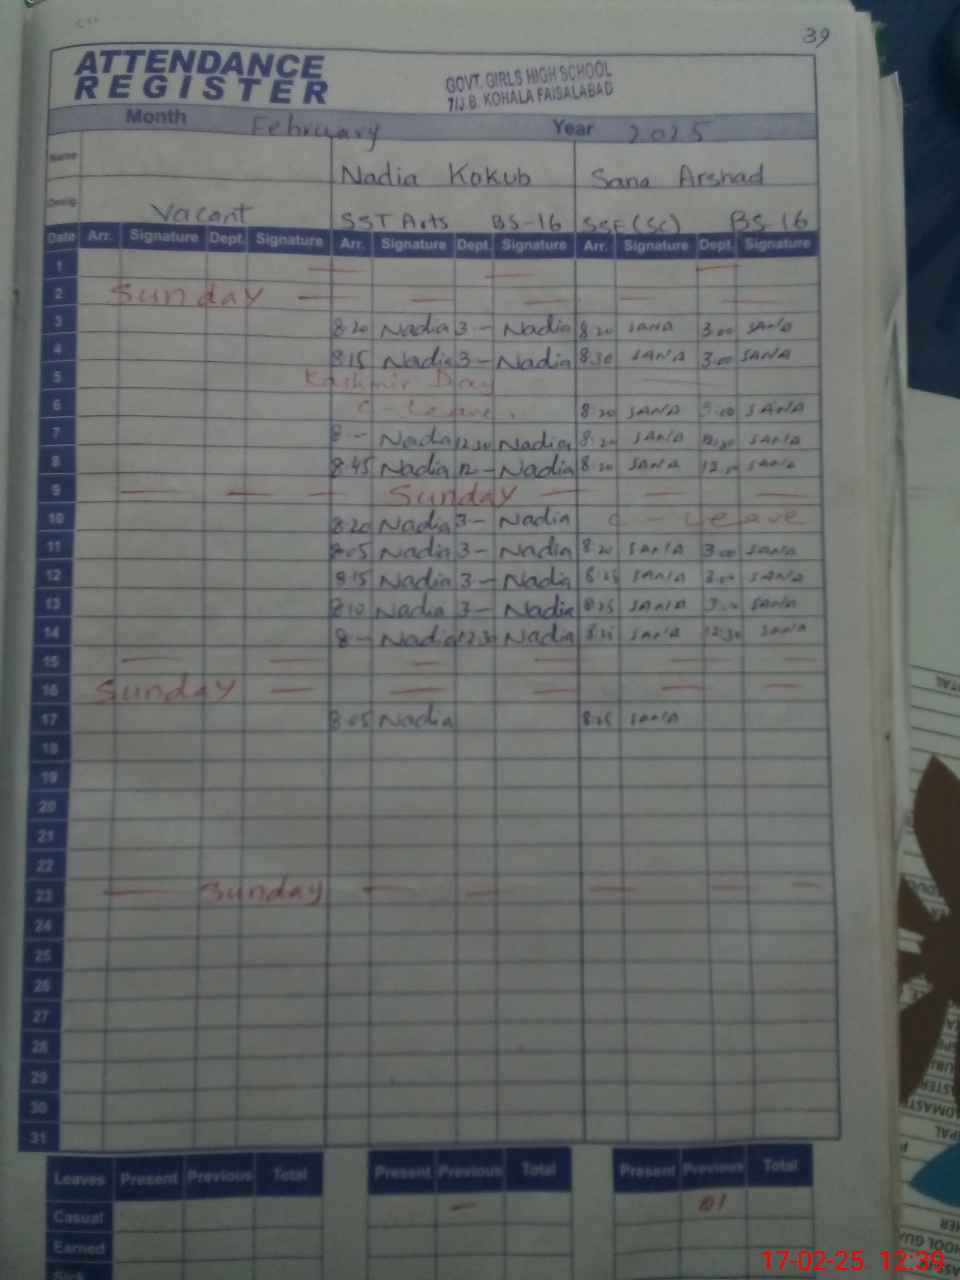 39
ATTENDANCE
REGISTER
GOVT. GIRLS HIGH SCHOOL
7/J.B. KOHALA FAISALABAD
Month February Year 2025
Name Nadia Kokub Sana Arshad
Desig. Vacant SST Arts BS-16 SSE (SC) BS-16
Date Arr. Signature Dept. Signature Arr. Signature Dept. Signature Arr. Signature Dept. Signature
1 — — —
2 Sunday — — — — —
3 8:20 Nadia 3 — Nadia 8:20 SANA 3:00 SANA
4 8:15 Nadia 3 — Nadia 8:30 SANA 3:00 SANA
5 Kashmir Day
6 C - Leave 8:20 SANA 3:00 SANA
7 8 — Nadia 12:30 Nadia 8:20 SANA 12:30 SANA
8 8:45 Nadia 12 — Nadia 8:20 SANA SANA
9 — — — Sunday — — —
10 8:20 Nadia 3 — Nadia C - Leave
11 8:05 Nadia 3 — Nadia 8:20 SANA 3:00 SANA
12 8:15 Nadia 3 — Nadia 8:25 SANA 3:00 SANA
13 8:10 Nadia 3 — Nadia 8:25 SANA SANA
14 8 — Nadia 12:30 Nadia 8:25 SANA 12:30 SANA
15 — — — — — —
16 Sunday — — — — —
17 8:05 Nadia 8:25 SANA
18
19
20
21
22
23 — Sunday — — — — —
24
25
26
27
28
29
30
31
Leaves Present Previous Total Present Previous Total Present Previous Total
Casual — 01
Earned
Sick
17-02-25 12:39